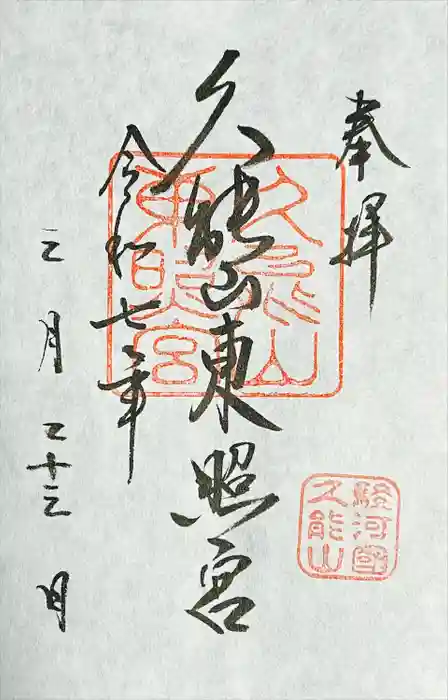 奉拝
久能山東照宮
令和七年
三月二十三日
久能山東照宮
駿河國
久能山